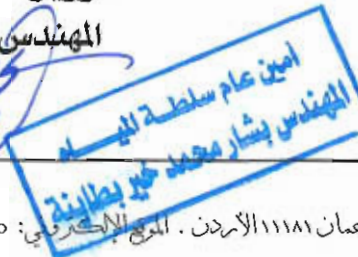 المهندس
امين عام سلطة المياه
المهندس بشار محمد خير بطاينة
عمان ١١١٨١ الأردن . الموقع الإلكتروني: